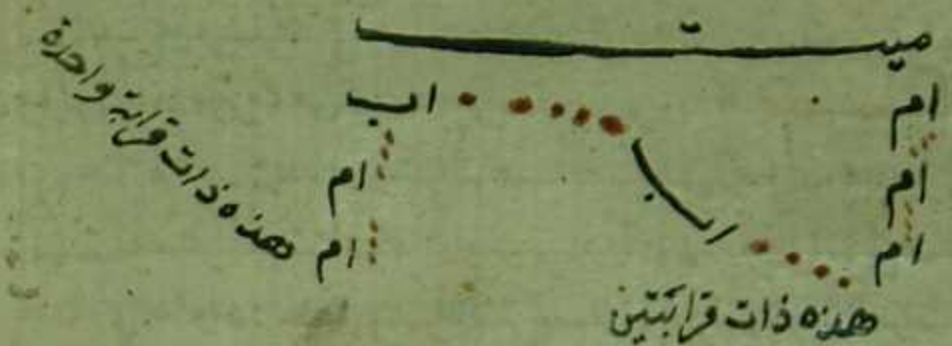 ميت
ام اب اب
ام ام
ام ام
هذه ذات قرابتين
هذه ذات قرابة واحدة